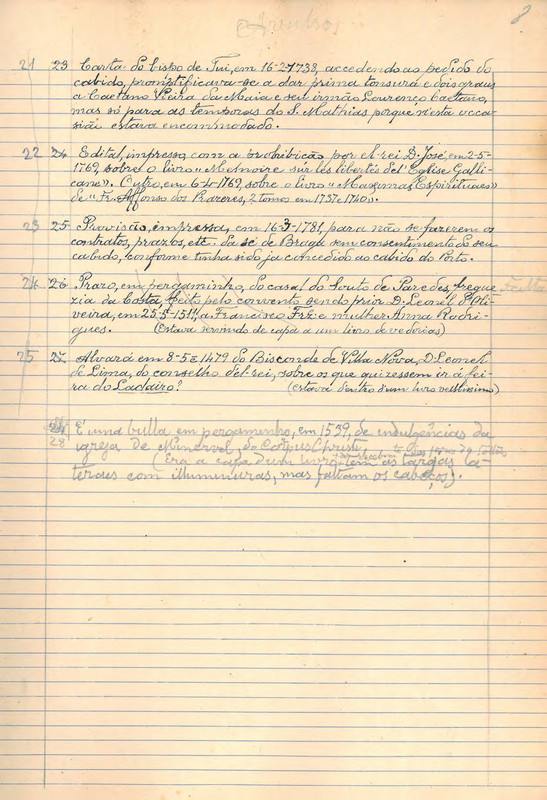 Avulsos
8
21 23 Carta do bispo de Tui, em 16-2-1738, accedendo ao pedido do
cabido, promptificava-se a dar prima tonsura e dois graus
a Caetano Vieira da Maia e seu irmão Lourenço Caetano,
mas só para as temporas de S. Mathias porque nesta occa-
sião estava encommodado.
22 24. Edital, impresso, com a prohibição por el-rei D. José, em 2-5-
1769, sobre o livro "Memoire sur les libertés de l'Eglise Galli-
cane". Outro, em 6-4-1769, sobre o livro "Maximas Espirituaes"
de "Fr. Affonso dos Prazeres, 2 tomos em 1737 e 1740".
23 25. Provisão, impressa, em 16-3-1781, para não se fazerem os
contratos, prazos, etc. da sé de Braga sem consentimento do seu
cabido, conforme tinha sido já concedido ao cabido do Porto.
24 26. Prazo, em pergaminho, do casal do Souto de Paredes, fregue-
zia da Costa, feito pelo convento sendo prior D. Leonel d'Oli-
veira, em 25-5-1511, a Francisco Frz e mulher Anna Rodri-
gues. (Estava servindo de capa a um livro de vedorias)
Falta
25 27. Alvará em 8-5-1479 do Bisconde de Villa Nova, D. Leonel
de Lima, do conselho del-rei, sobre os que quizessem ir á fei-
ra do Ladairo? (estava dentro d'um livro velhissimo)
28 É uma bulla, em pergaminho, em 1539, de indulgências da
igreja de Minerva, do Corpus Christi
(Era a capa dum livro, tem as largas la-
teraes com illuminuras, mas faltam os cabeços).